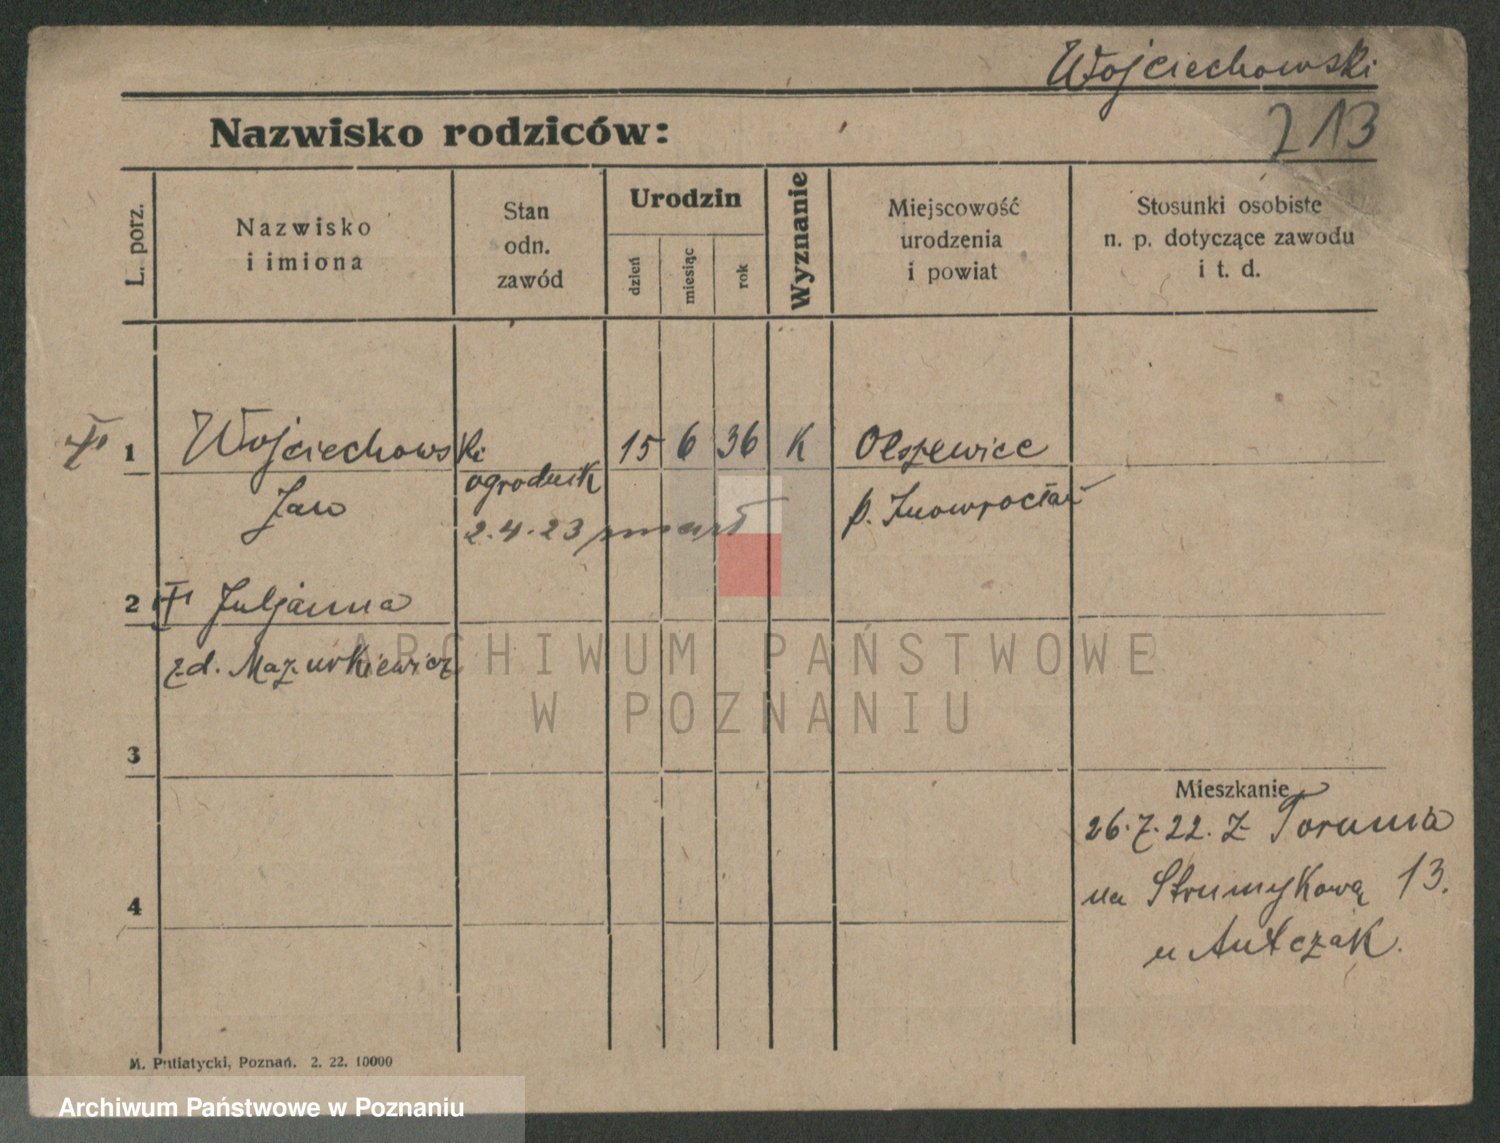 Wojciechowski
213
Nazwisko rodziców:
L. porz.
Nazwisko
i imiona
Stan
odn.
zawód
Urodzin
dzień
miesiąc
rok
Wyznanie
Miejscowość
urodzenia
i powiat
Stosunki osobiste
n. p. dotyczące zawodu
i t. d.
1 Wojciechowski 15 6 36 K Olszewice
Jan ogrodnik p. Inowrocław
2.4.23 zmarł
2 Juljanna
zd. Mazurkiewicz
ARCHIWUM PAŃSTWOWE
W POZNANIU
3
Mieszkanie
26.7.22. z Torunia
na Strumykową 13.
u Antczak.
4
M. Putiatycki, Poznań. 2. 22. 10000
Archiwum Państwowe w Poznaniu